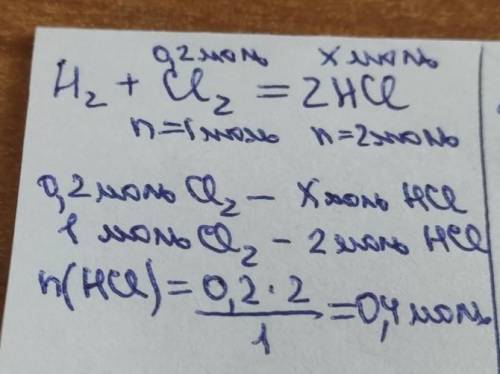 0,2 моль x моль
H₂ + Cl₂ = 2HCl
n=1 моль n=2 моль
0,2 моль Cl₂ – x моль HCl
1 моль Cl₂ – 2 моль HCl
n(HCl) = 0,2·2/1 = 0,4 моль